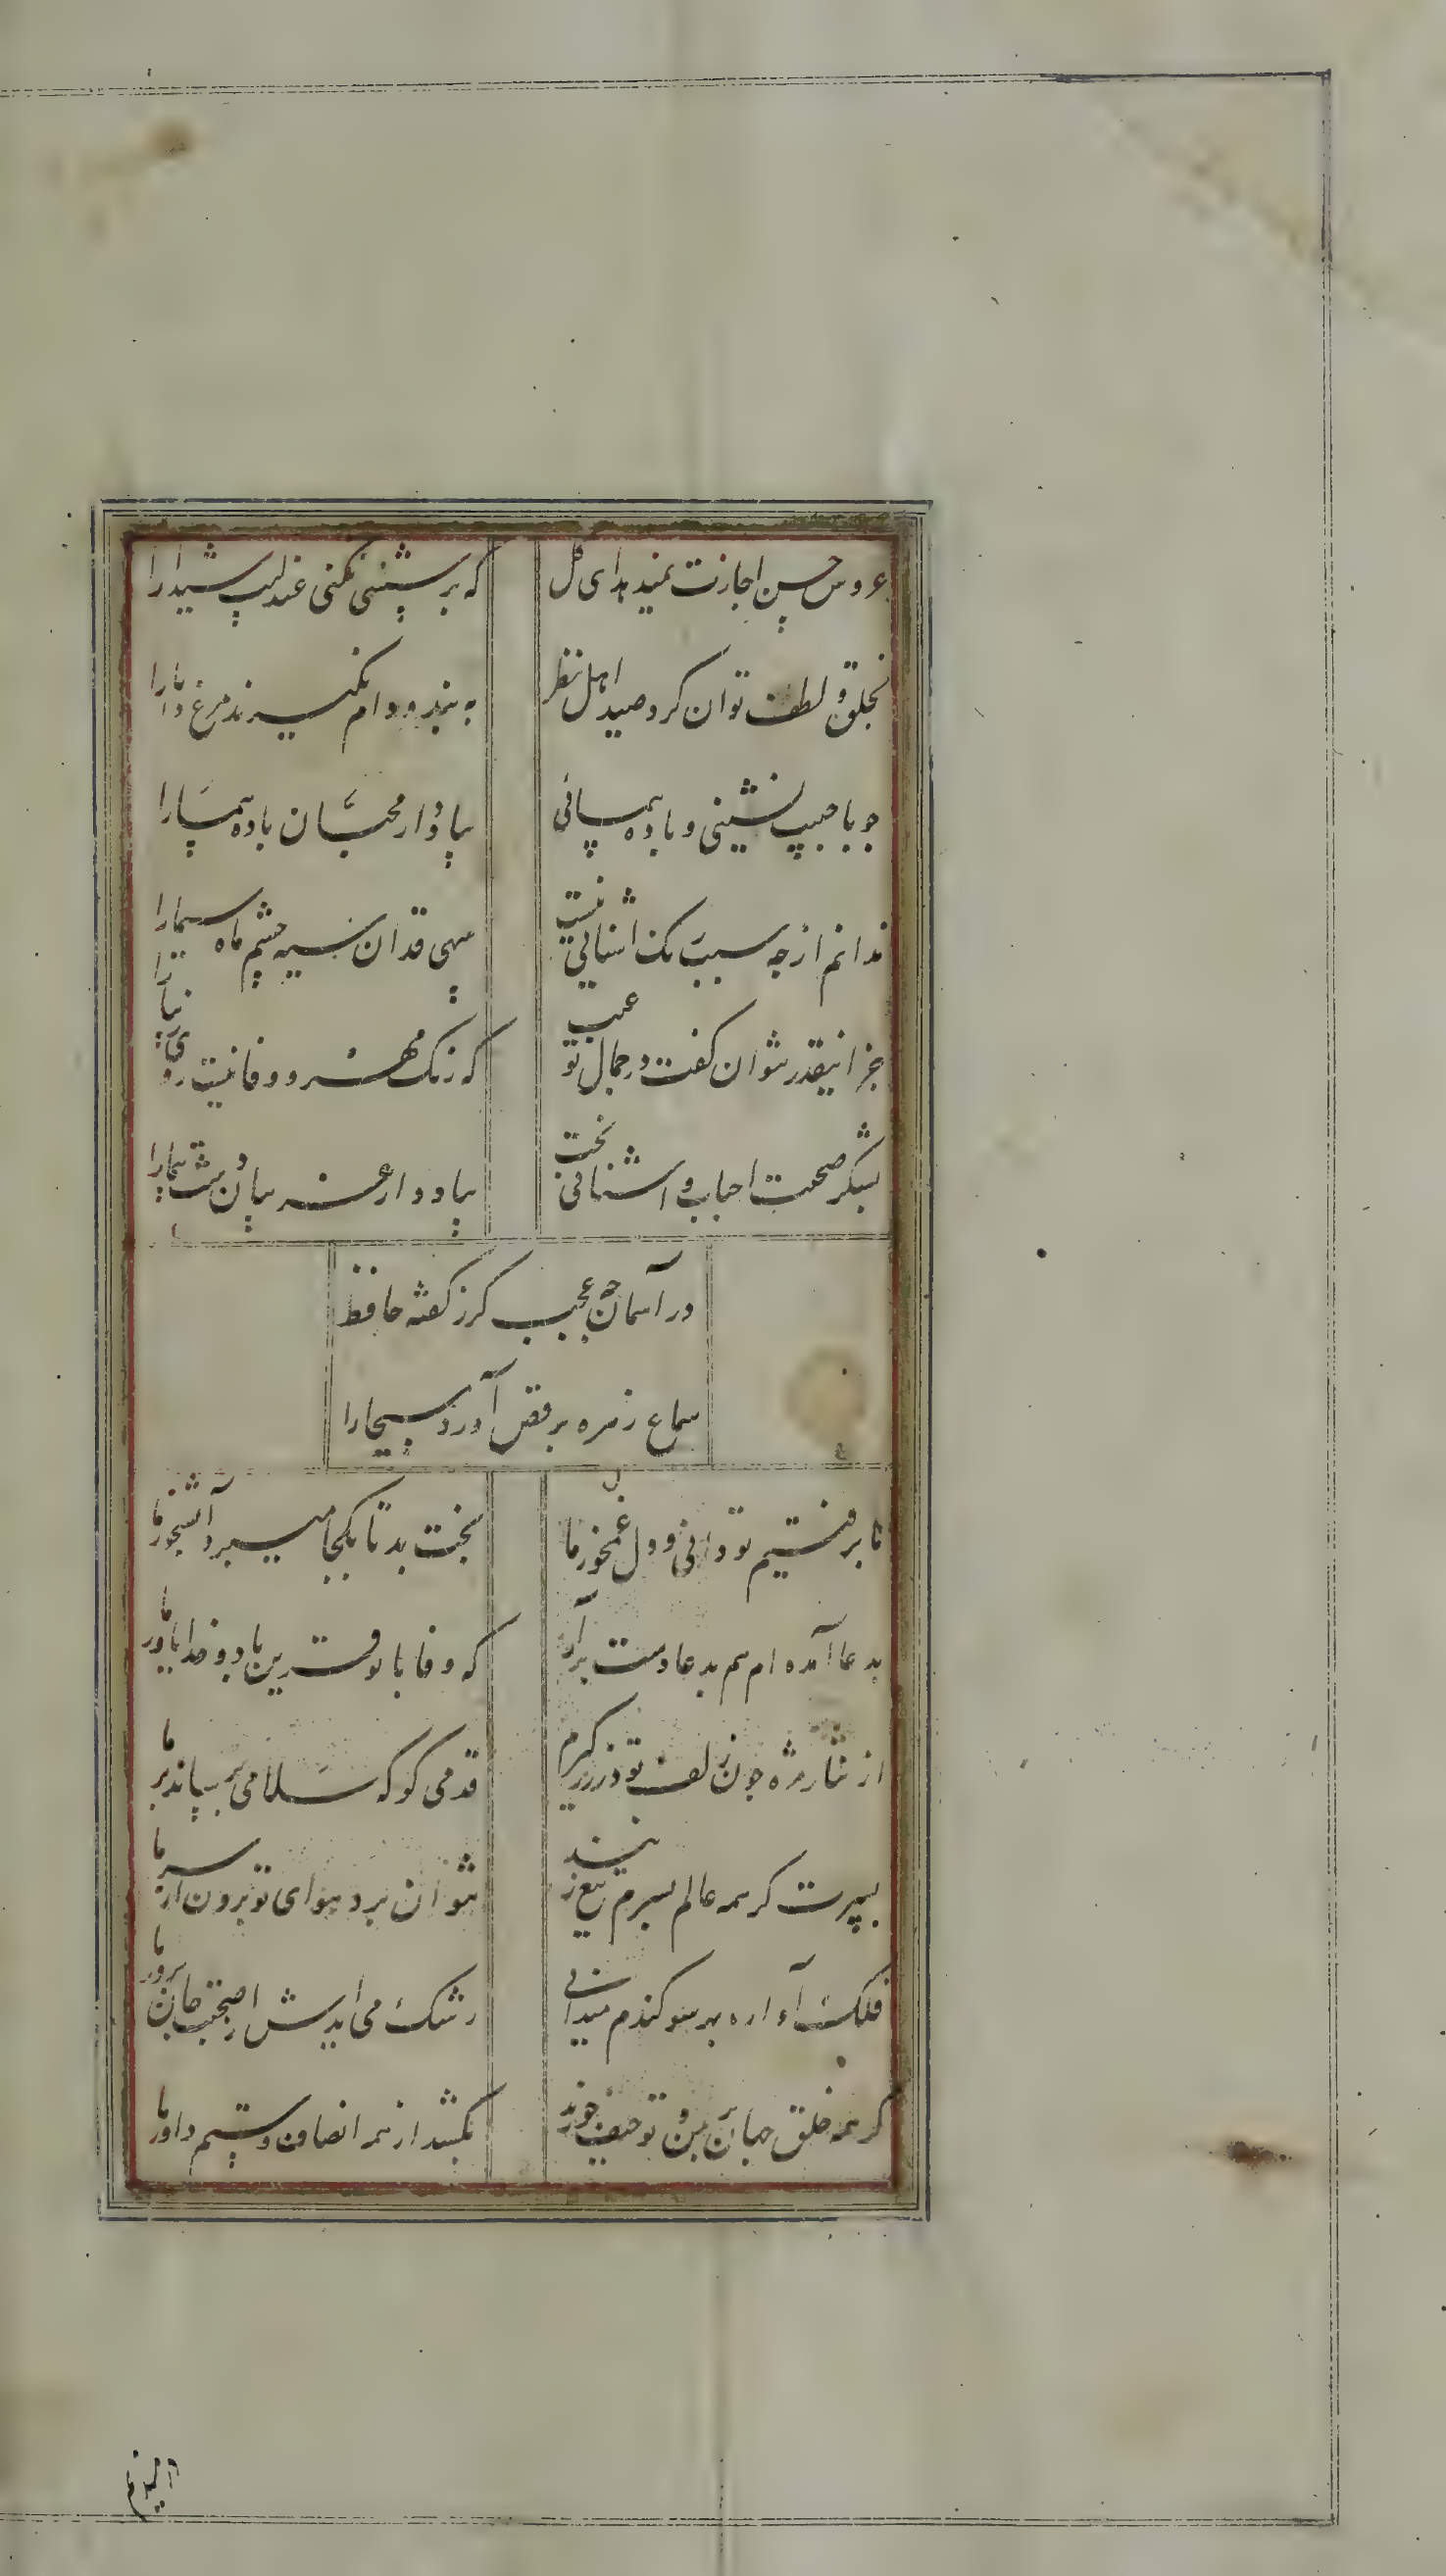 عروس حسن اجازت نمیدهد ای گل که برسشی نکنی عندلیب شیدا را
بخلق و لطف توان کرد صید اهل نظر به بند و دام نگیرند مرغ دانا را
چو با حبیب نشینی و باده پیمائی بیاد دار محبان باده پیما را
ندانم از چه سبب رنگ اشنائی نیست سهی قدان سیه چشم ماه سیما را
جز اینقدر نتوان گفت در جمال تو عیب که رنگ مهر و وفا نیست روی زیبا را
بشکر صحبت احباب و اشنائی بخت بیاد دار غریبان دشت پیما را
در آسمان چه عجب گر ز گفته حافظ
سماع زهره برقص آورد مسیحا را
ما برفتیم تو دانی و دل غمخور ما بخت بد تا بکجا میبرد آبشخور ما
بدعا آمده ام هم بدعا دست برآر که وفا با تو قرین باد و خدا یاور ما
از نثار مژه چون زلف تو در زر گیرم قدمی کو که سلامی برساند بر ما
بسرت گر همه عالم بسرم تیغ زنند نتوان برد هوای تو برون از سر ما
فلک آواره بهر سو کندم میدانی رشک می ایدش از صحبت جان پرور ما
گر همه خلق جهان بر من و تو حیف خورند بکشد از همه انصاف و ستم داور ما